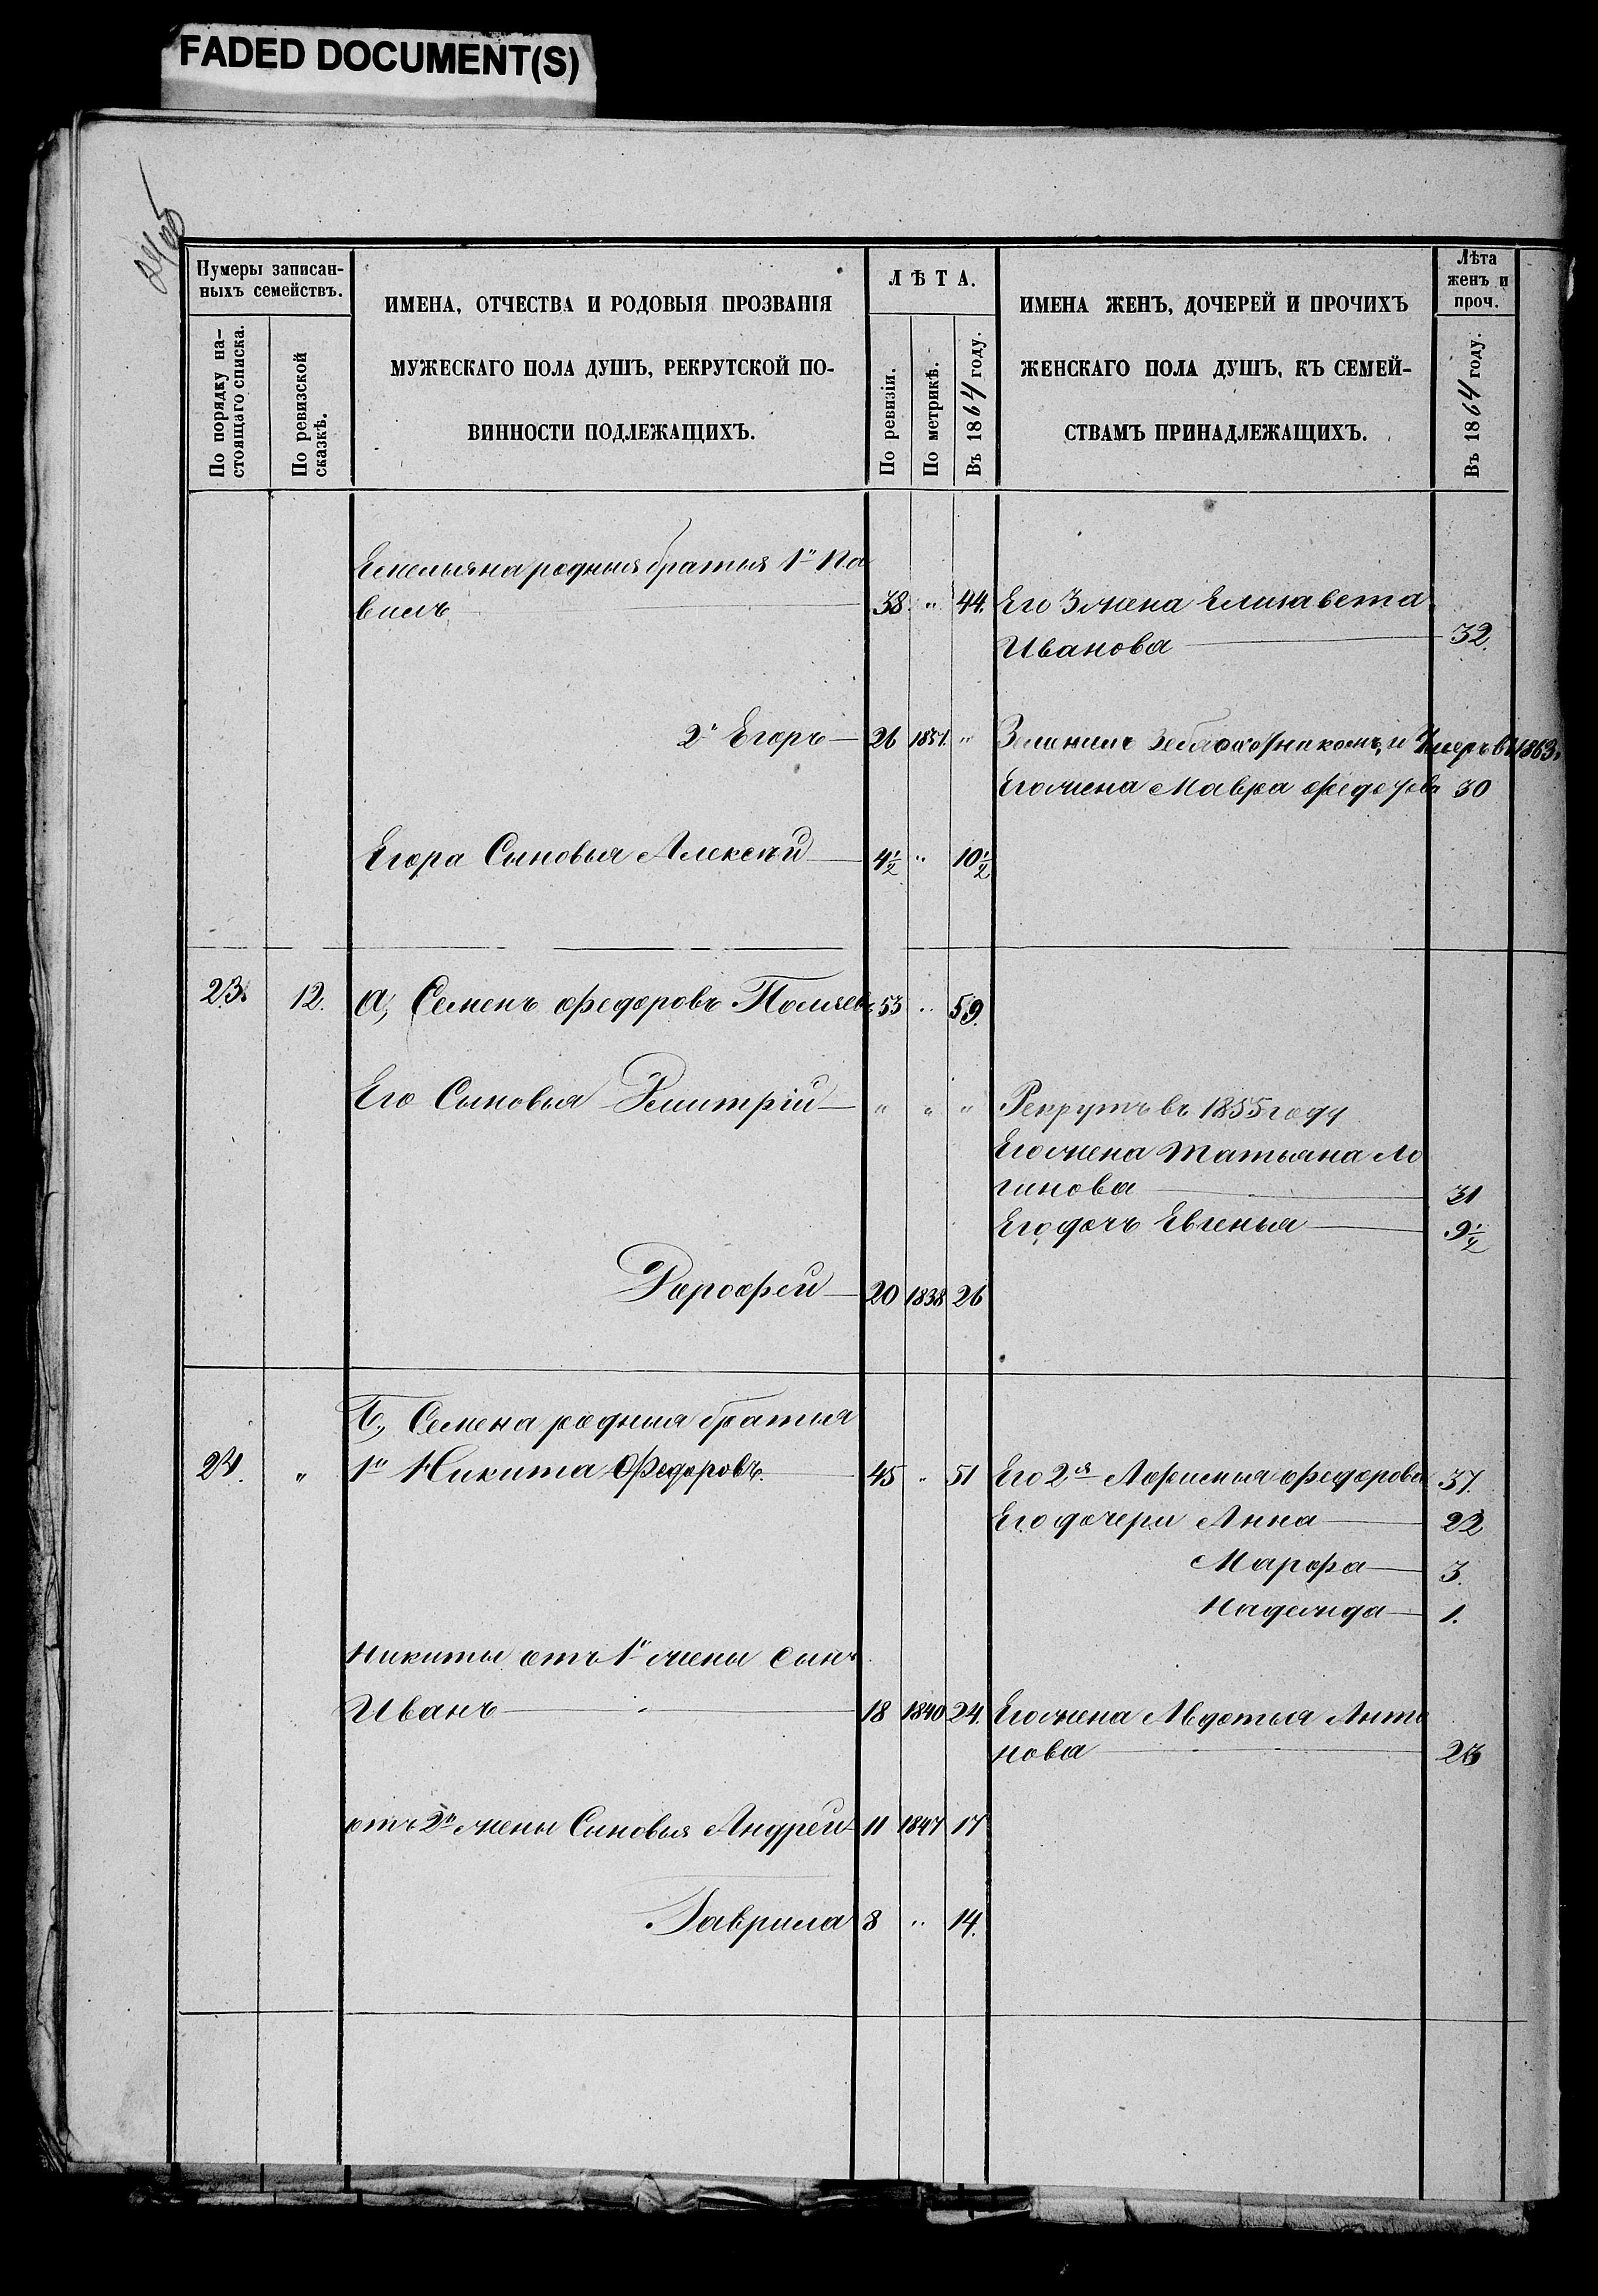 FADED DOCUMENT(S)
Нумеры записан-
ныхъ семействъ.
По порядку на-
стоящаго списка.
По ревизской
сказкѣ.
ИМЕНА, ОТЧЕСТВА И РОДОВЫЯ ПРОЗВАНІЯ
МУЖЕСКАГО ПОЛА ДУШЪ, РЕКРУТСКОЙ ПО-
ВИННОСТИ ПОДЛЕЖАЩИХЪ.
ЛѢТА.
По ревизіи.
По метрикѣ.
Въ 1864 году.
ИМЕНА ЖЕНЪ, ДОЧЕРЕЙ И ПРОЧИХЪ
ЖЕНСКАГО ПОЛА ДУШЪ, КЪ СЕМЕЙ-
СТВАМЪ ПРИНАДЛЕЖАЩИХЪ.
Лѣта
женъ и
проч.
Въ 1864 году.
Емельяна родныя братья 1й Па
велъ 38 " 44. Его жена Елизавета
Иванова 32.
2й Егоръ 26 1851. " и Умеръ въ 1863
Его жена Мавра Федорова 30
Егора Сыновья Алексѣй 4½ " 10½
23. 12. а, Семенъ Федоровъ 53 " 59.
Его Сыновья Дмитрій " " " Рекрутъ въ 1855 году
Его жена Татьяна Ло
гинова 31
Его дочь Евгенья 9½
Дорофей 20 1838 26
Б, Семена родныя братья
24. " 1й Никита Федоровъ. 45 " 51 Его 2я Афимья Федорова 37.
Его дочери Анна 22
Марфа 3.
Надежда 1.
Никиты отъ 1й жены сынъ
Иванъ 18 1840 24. Его жена Авдотья Анто
нова 23
отъ 2й жены Сыновья Андрей 11 1847 17
Гаврила 8 " 14.